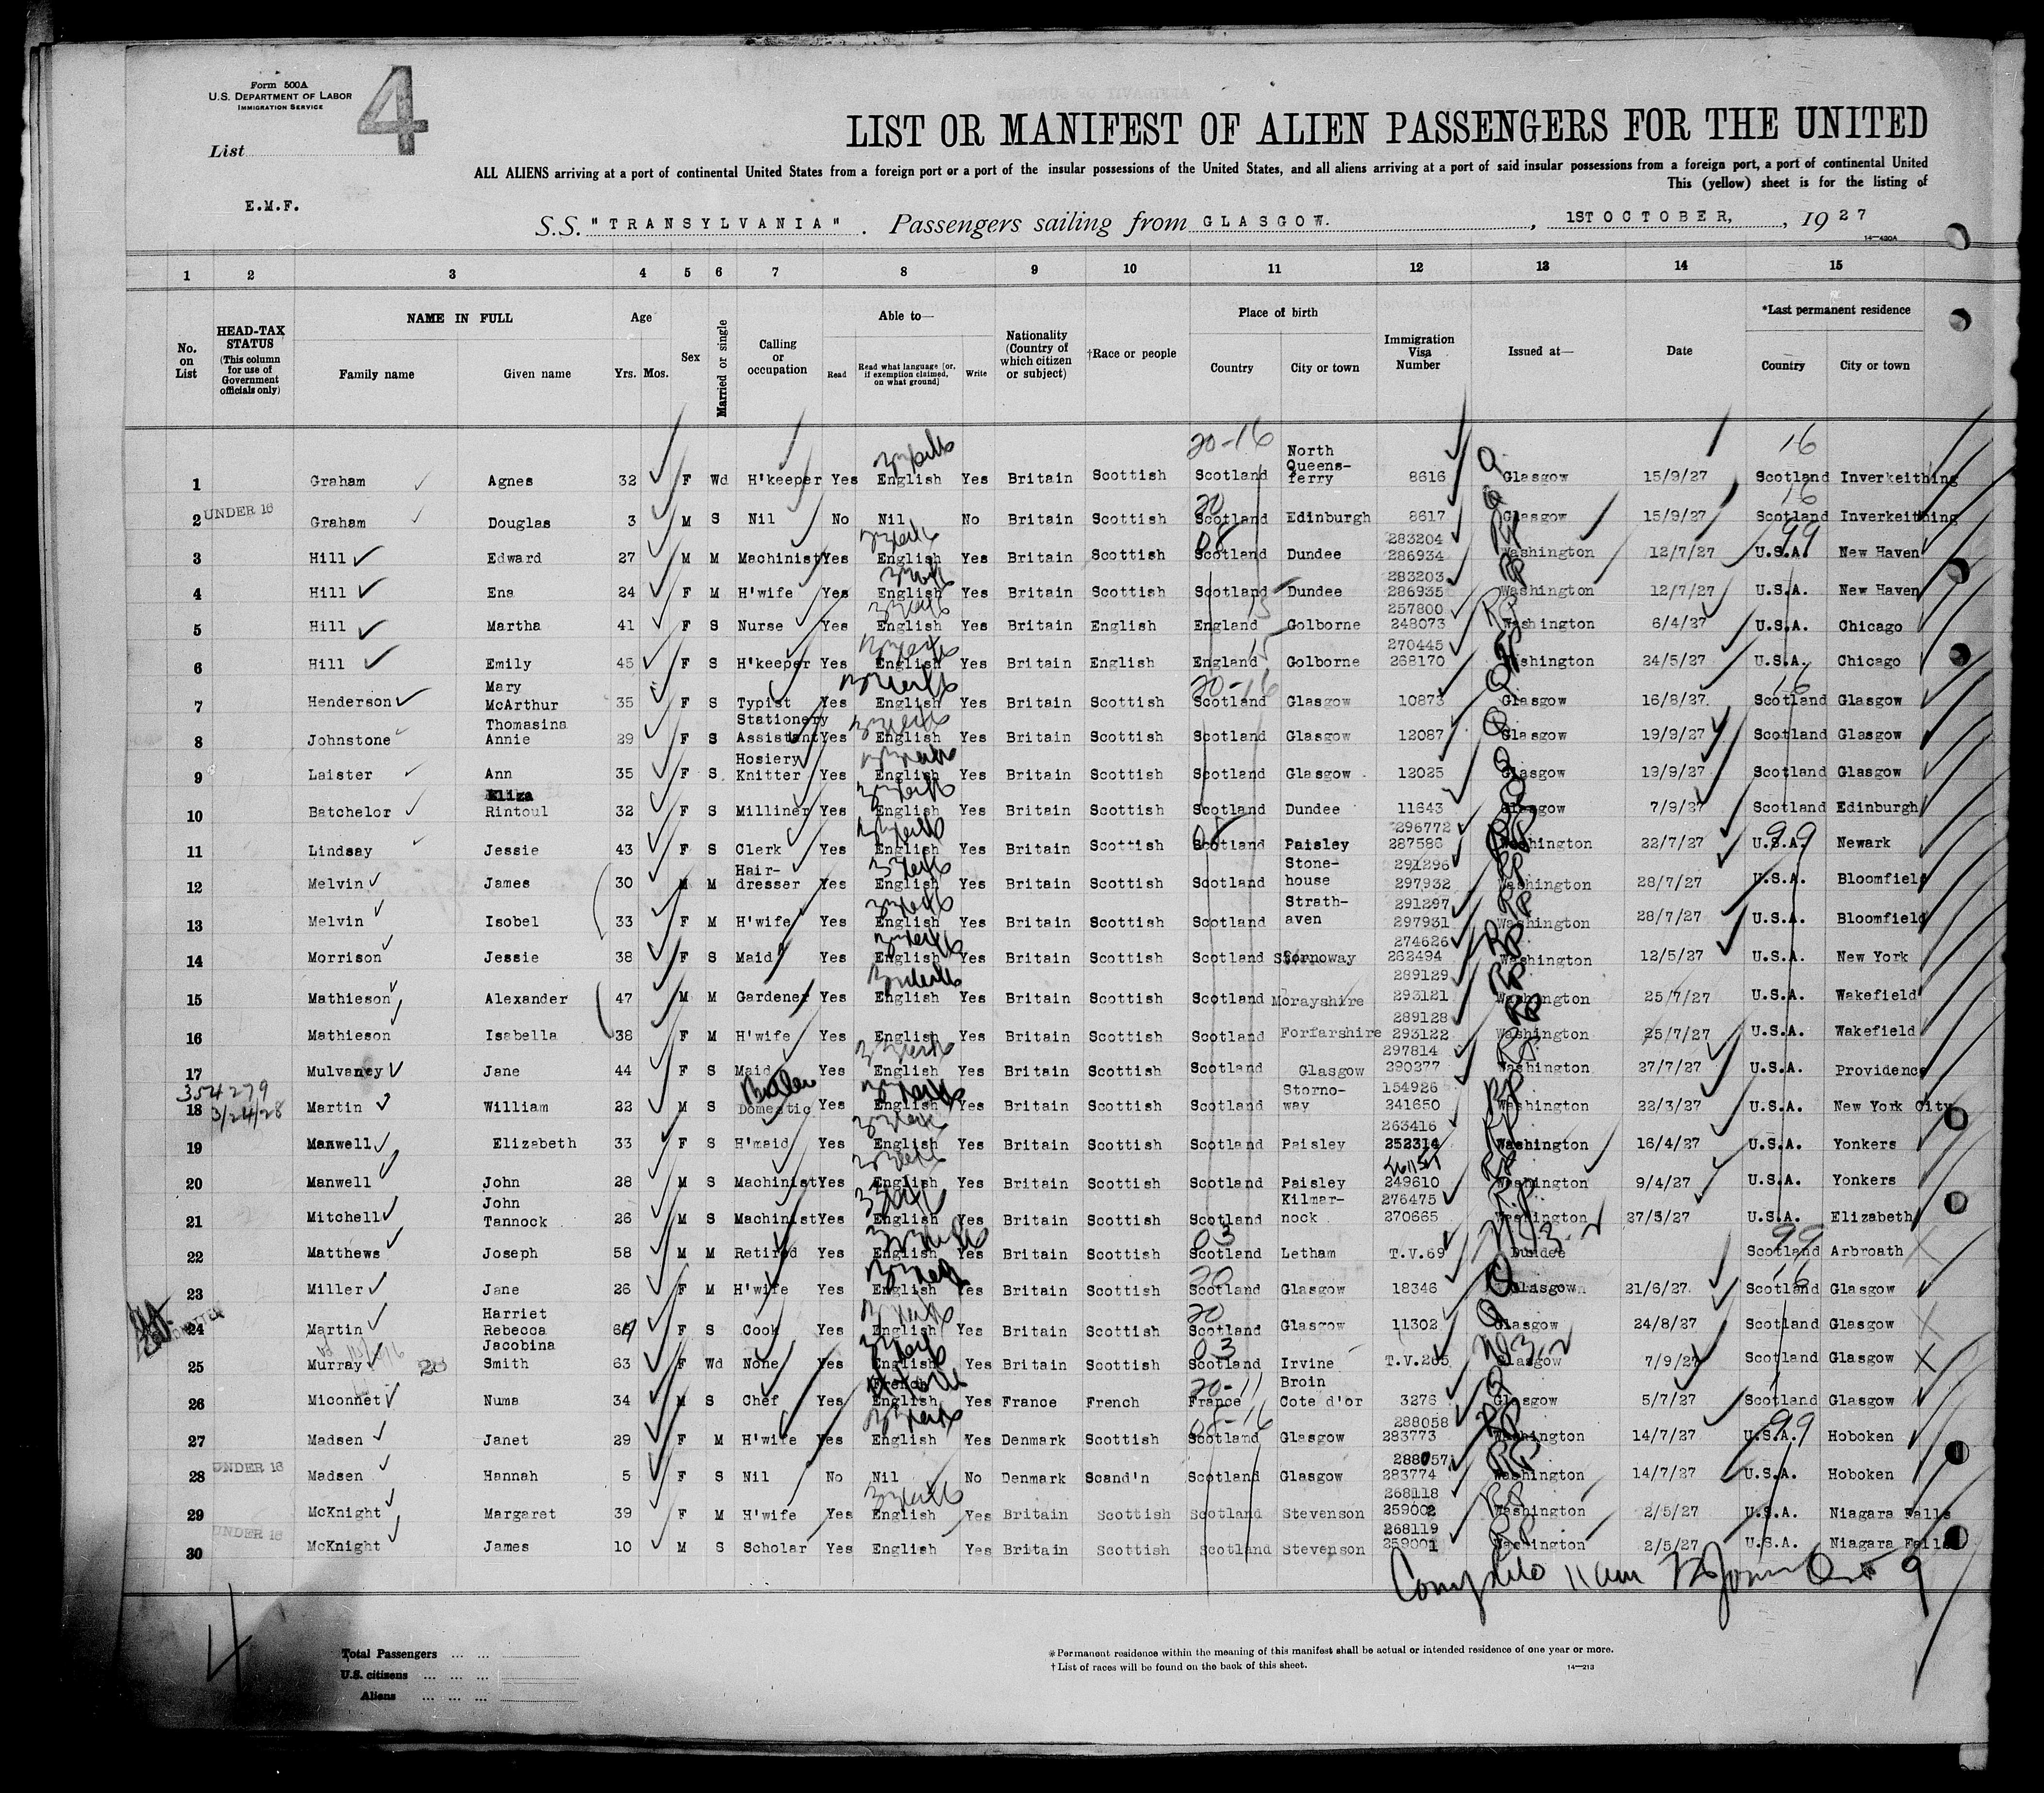 Form 500A
U.S. DEPARTMENT OF LABOR
IMMIGRATION SERVICE
4
List
LIST OR MANIFEST OF ALIEN PASSENGERS FOR THE UNITED
ALL ALIENS arriving at a port of continental United States from a foreign port or a port of the insular possessions of the United States, and all aliens arriving at a port of said insular possessions from a foreign port, a port of continental United
This (yellow) sheet is for the listing of
E.M.F.
S.S. "TRANSYLVANIA". Passengers sailing from GLASGOW., 1ST OCTOBER,, 1927
14—430A
1 2 3 4 5 6 7 8 9 10 11 12 13 14 15
No. on List
HEAD-TAX STATUS (This column for use of Government officials only)
NAME IN FULL
Family name Given name
Age
Yrs. Mos.
Sex
Married or single
Calling or occupation
Able to—
Read Read what language [or, if exemption claimed, on what ground] Write
Nationality (Country of which citizen or subject)
†Race or people
Place of birth
Country City or town
Immigration Visa Number
Issued at—
Date
*Last permanent residence
Country City or town
20-16 16
1 Graham Agnes 32 F Wd H'keeper Yes English Yes Britain Scottish Scotland North Queens-ferry 8616 Glasgow 15/9/27 Scotland Inverkeithing
UNDER 16 20 16
2 Graham Douglas 3 M S Nil No Nil No Britain Scottish Scotland Edinburgh 8617 Glasgow 15/9/27 Scotland Inverkeithing
99
3 Hill Edward 27 M M Machinist Yes English Yes Britain Scottish Scotland Dundee 283204 286934 Washington 12/7/27 U.S.A. New Haven
4 Hill Ena 24 F M H'wife Yes English Yes Britain Scottish Scotland Dundee 283203 286935 Washington 12/7/27 U.S.A. New Haven
15
5 Hill Martha 41 F S Nurse Yes English Yes Britain English England Golborne 257800 248073 Washington 6/4/27 U.S.A. Chicago
15
6 Hill Emily 45 F S H'keeper Yes English Yes Britain English England Golborne 270445 268170 Washington 24/5/27 U.S.A. Chicago
20-16 16
7 Henderson Mary McArthur 35 F S Typist Yes English Yes Britain Scottish Scotland Glasgow 10873 Glasgow 16/8/27 Scotland Glasgow
8 Johnstone Thomasina Annie 29 F S Stationery Assistant Yes English Yes Britain Scottish Scotland Glasgow 12087 Glasgow 19/9/27 Scotland Glasgow
9 Laister Ann 35 F S Hosiery Knitter Yes English Yes Britain Scottish Scotland Glasgow 12025 Glasgow 19/9/27 Scotland Glasgow
10 Batchelor Eliza Rintoul 32 F S Milliner Yes English Yes Britain Scottish Scotland Dundee 11643 Glasgow 7/9/27 Scotland Edinburgh
99
11 Lindsay Jessie 43 F S Clerk Yes English Yes Britain Scottish Scotland Paisley 296772 287586 Washington 22/7/27 U.S.A. Newark
12 Melvin James 30 M M Hair-dresser Yes English Yes Britain Scottish Scotland Stone-house 291296 297932 Washington 28/7/27 U.S.A. Bloomfield
13 Melvin Isobel 33 F M H'wife Yes English Yes Britain Scottish Scotland Strath-aven 291297 297931 Washington 28/7/27 U.S.A. Bloomfield
14 Morrison Jessie 38 F S Maid Yes English Yes Britain Scottish Scotland Stornoway 274626 262494 Washington 12/5/27 U.S.A. New York
15 Mathieson Alexander 47 M M Gardener Yes English Yes Britain Scottish Scotland Morayshire 289129 293121 Washington 25/7/27 U.S.A. Wakefield
16 Mathieson Isabella 38 F M H'wife Yes English Yes Britain Scottish Scotland Forfarshire 289128 293122 Washington 25/7/27 U.S.A. Wakefield
17 Mulvaney Jane 44 F S Maid Yes English Yes Britain Scottish Scotland Glasgow 297814 290277 Washington 27/7/27 U.S.A. Providence
354279
3/24/28
18 Martin William 22 M S Domestic Yes English Yes Britain Scottish Scotland Storno-way 154926 241650 Washington 22/3/27 U.S.A. New York City
19 Manwell Elizabeth 33 F S H'maid Yes English Yes Britain Scottish Scotland Paisley 263416 252314 Washington 16/4/27 U.S.A. Yonkers
20 Manwell John 28 M S Machinist Yes English Yes Britain Scottish Scotland Paisley 249610 Washington 9/4/27 U.S.A. Yonkers
21 Mitchell John Tannock 26 M S Machinist Yes English Yes Britain Scottish Scotland Kilmar-nock 276475 270665 Washington 27/5/27 U.S.A. Elizabeth
03 99
22 Matthews Joseph 58 M M Retired Yes English Yes Britain Scottish Scotland Letham T.V.69 Dundee Scotland Arbroath
20 16
23 Miller Jane 26 F M H'wife Yes English Yes Britain Scottish Scotland Glasgow 18346 Glasgow 21/6/27 Scotland Glasgow
20
24 Martin Harriet Rebecca F S Cook Yes English Yes Britain Scottish Scotland Glasgow 11302 Glasgow 24/8/27 Scotland Glasgow
03
25 Murray Jacobina Smith 63 F Wd None Yes English Yes Britain Scottish Scotland Irvine T.V.265 Glasgow 7/9/27 Scotland Glasgow
20-11
26 Miconnet Numa 34 M S Chef Yes French English Yes France French France Broin Cote d'or 3276 Glasgow 5/7/27 Scotland Glasgow
99
27 Madsen Janet 29 F M H'wife Yes English Yes Denmark Scottish Scotland Glasgow 288058 283773 Washington 14/7/27 U.S.A. Hoboken
UNDER 16
28 Madsen Hannah 5 F S Nil No Nil No Denmark Scand'n Scotland Glasgow 288057 283774 Washington 14/7/27 U.S.A. Hoboken
29 McKnight Margaret 39 F M H'wife Yes English Yes Britain Scottish Scotland Stevenson 268118 259002 Washington 2/5/27 U.S.A. Niagara Falls
UNDER 16
30 McKnight James 10 M S Scholar Yes English Yes Britain Scottish Scotland Stevenson 268119 259001 Washington 2/5/27 U.S.A. Niagara Falls
4
Total Passengers ... ...
U.S. citizens ... ... ...
Aliens ... ... ...
*Permanent residence within the meaning of this manifest shall be actual or intended residence of one year or more.
†List of races will be found on the back of this sheet.
14—213